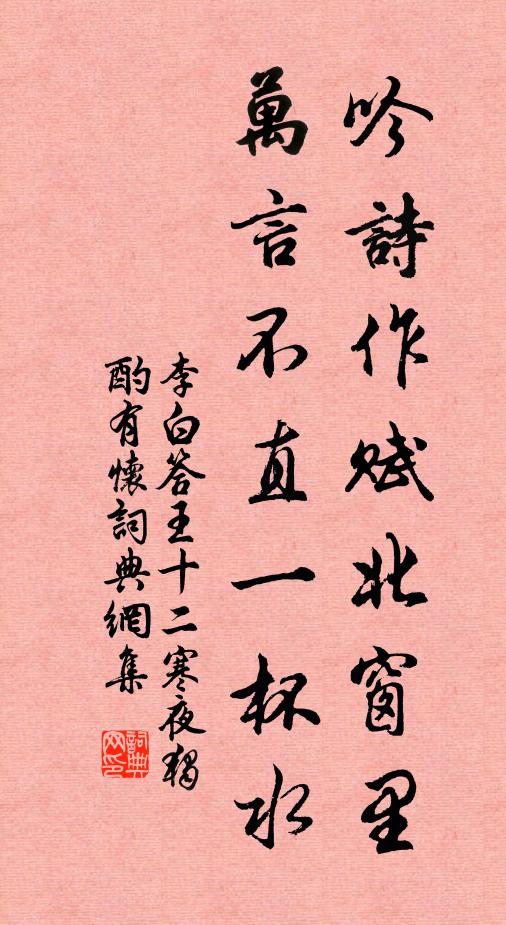 吟詩作賦北窗里
萬言不直一杯水
李白答王十二寒夜獨
酌有懷詞典網集
詞典
网印